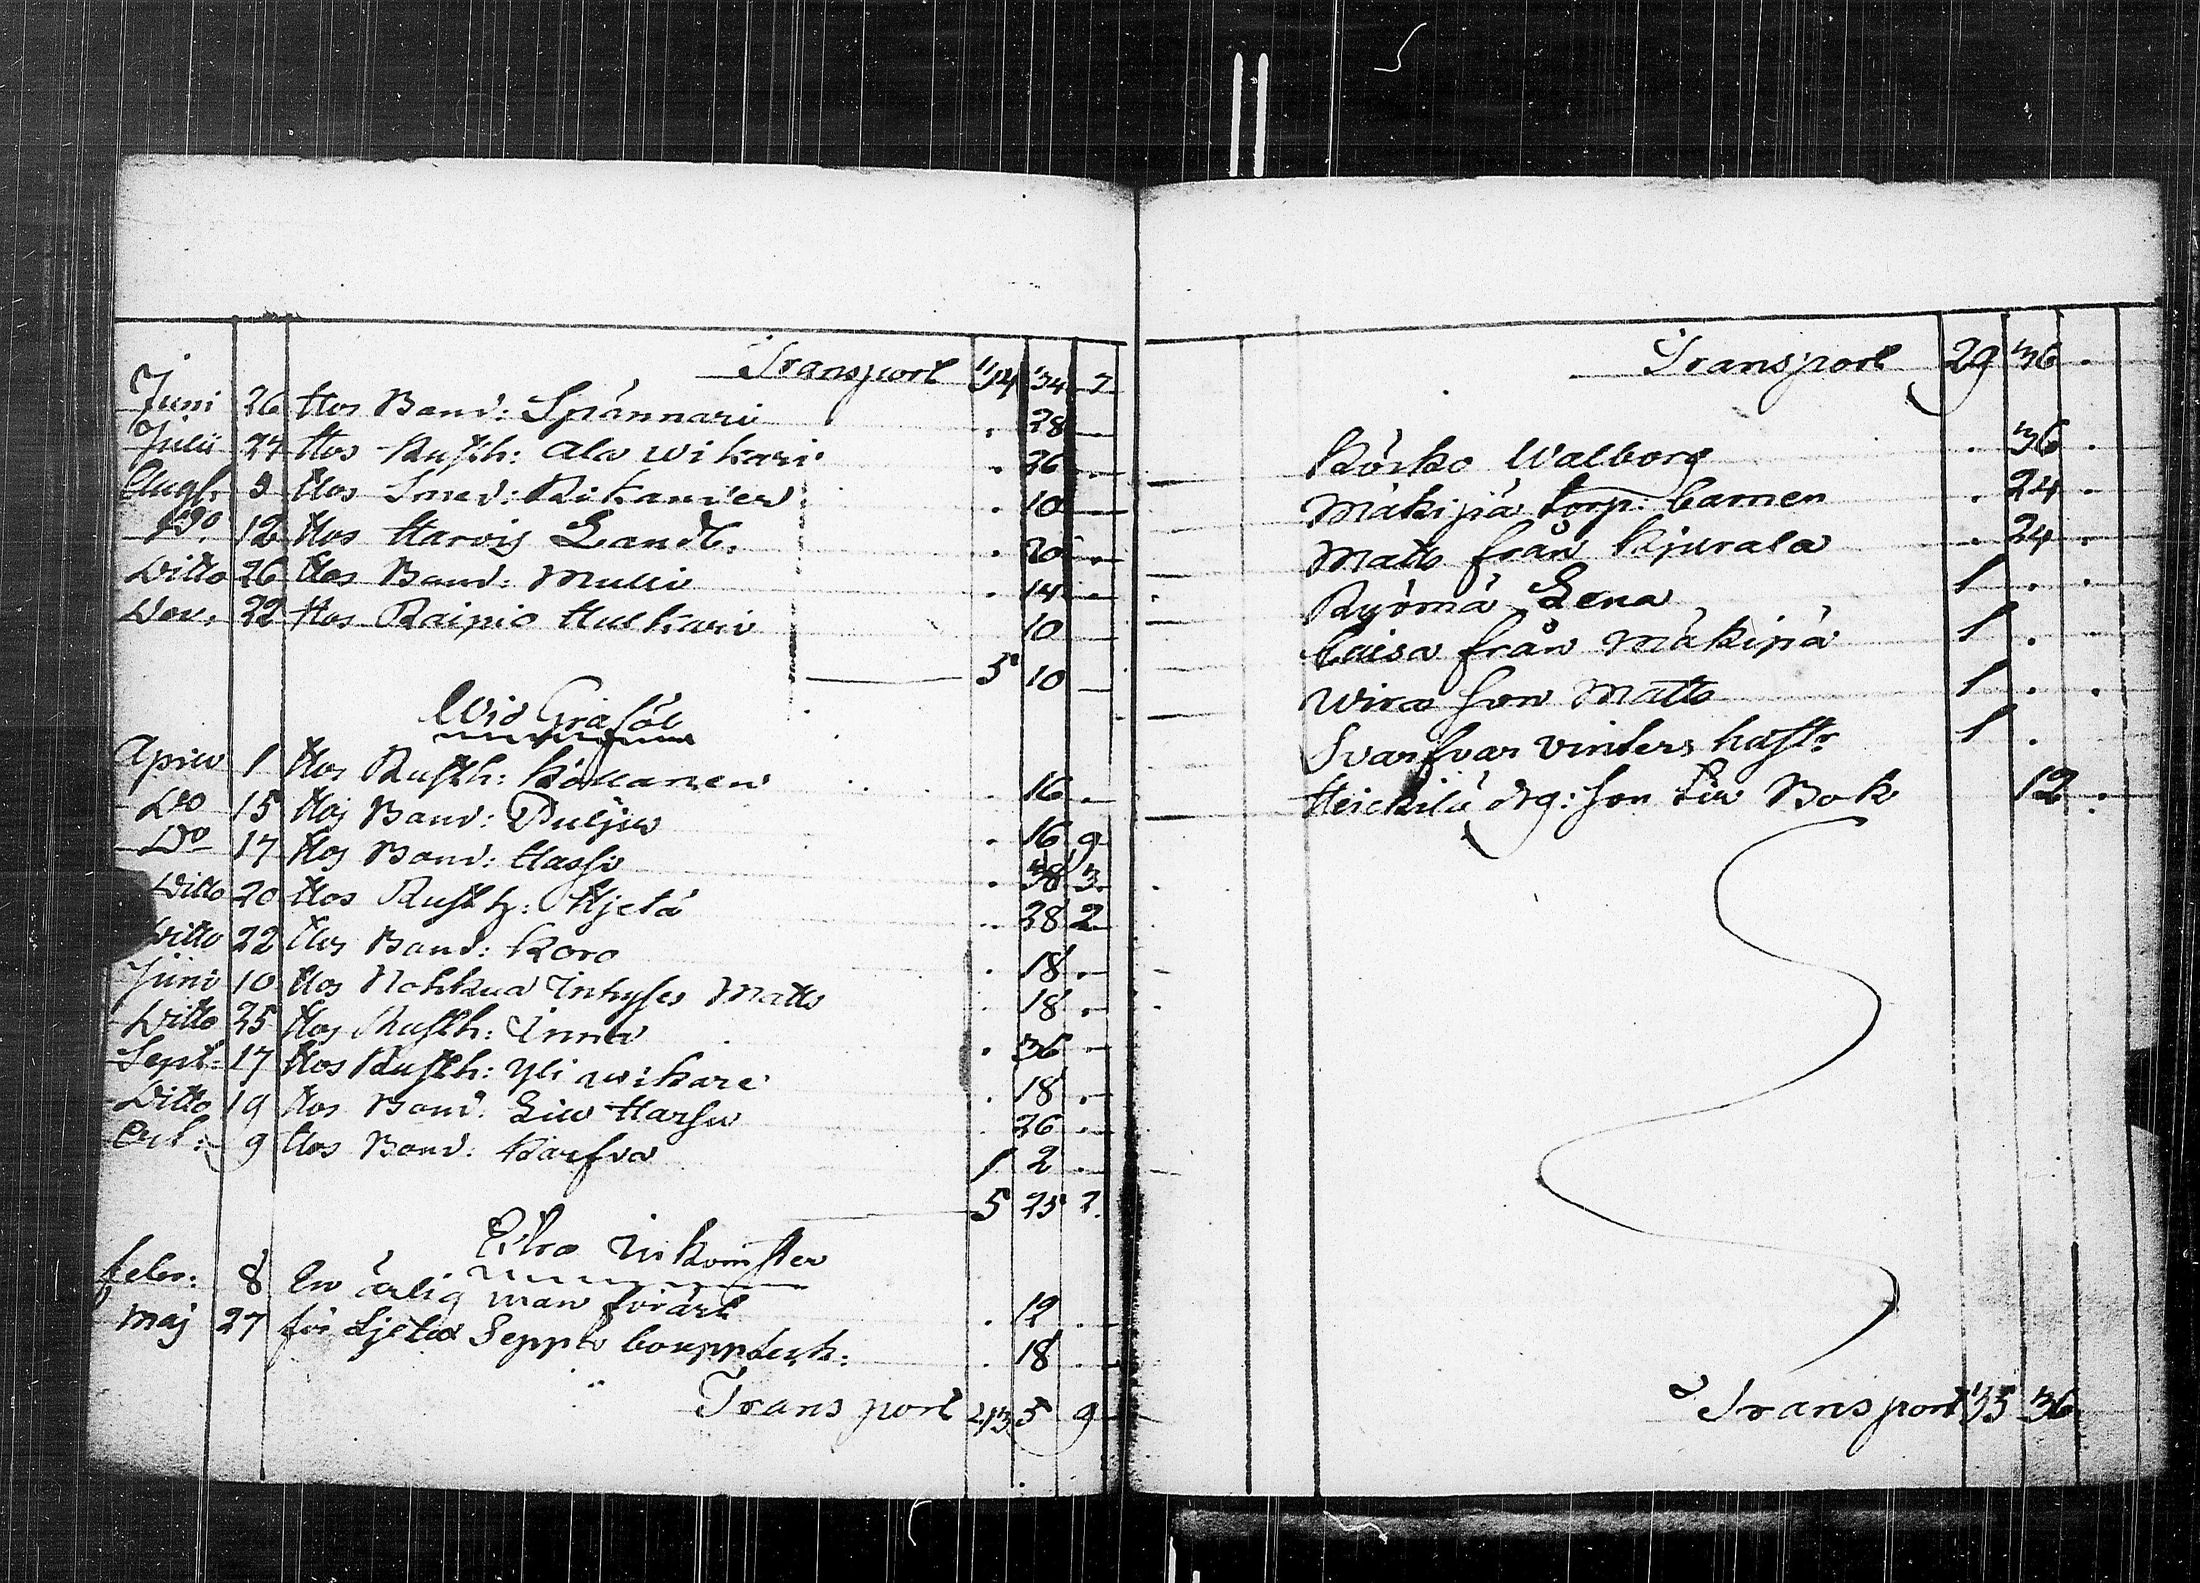 Transport 114 34 7
Juni 26 Hos Bond: Spännari . 28
Julii 24 Hos Rusth: Ala Wikari . 26
Augst 9 Hos Smed: Rikander . 10
Do 12 Hos Harvis Landb. . 20
Ditto 26 Hos Bond: Mulli . 14
Dec. 22 Hos Raipio Hulkari 10
5 10
Wid Grafööl
Aprill 1 Hos Rusth: Källanen . 16
Do 15 Hos Bond: Pulju . 16 9
Do 17 Hos Bond: Hassi . 38 3
Ditto 20 Hos Rusth: Hjetä . 28 2
Ditto 22 Hos Bond: Koro . 18
Juni 10 Hos Nohkua Inhyses Matts . 18
Ditto 25 Hos Rusth: Inna . 36
Sept: 17 Hos Rusth: Yli wikare . 18
Ditto 19 Hos Bond: Harju . 26
Oct: 9 Hos Bond: Karfva 1 2
5 25 2
Extra Inkomster
Febr: 8 En ärlig man förärt . 12
Maj 27 för Seppäs bouppteck: . 18
Transport 213 5 9
Transport 29 36
Körko Walborg . 36
Mäkipä torp: barnen . 24
Matts från Kjurala . 24
Ryömä Lena 1
Caisa från Mäkipä 1
Wira son Matts 1
Svarfvar Vinters hustr 1
Heickilä drg: son Bok 12
Transport 35 36